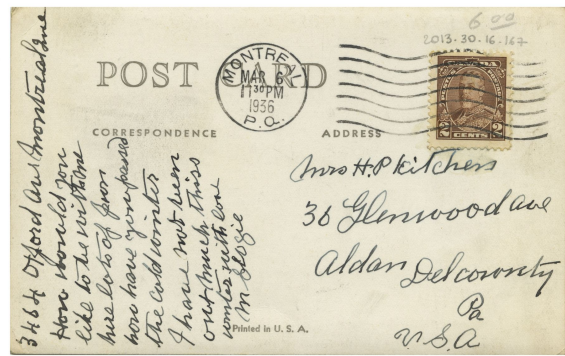 6 00
2013.30.16.167
POST CARD
MONTREAL
MAR 6
11 30 PM
1936
P.Q.
CANADA
2 CENTS 2
CORRESPONDENCE
ADDRESS
3464 Oxford Ave Montreal Que
How would you
like to be with me
here lots of fun
how have you passed
the cold winter
I have not been
out much this
winter with love
M
Mrs H P Kitchen
36 Glenwood ave
Aldan Del county
Pa
U.S.A
Printed in U. S. A.